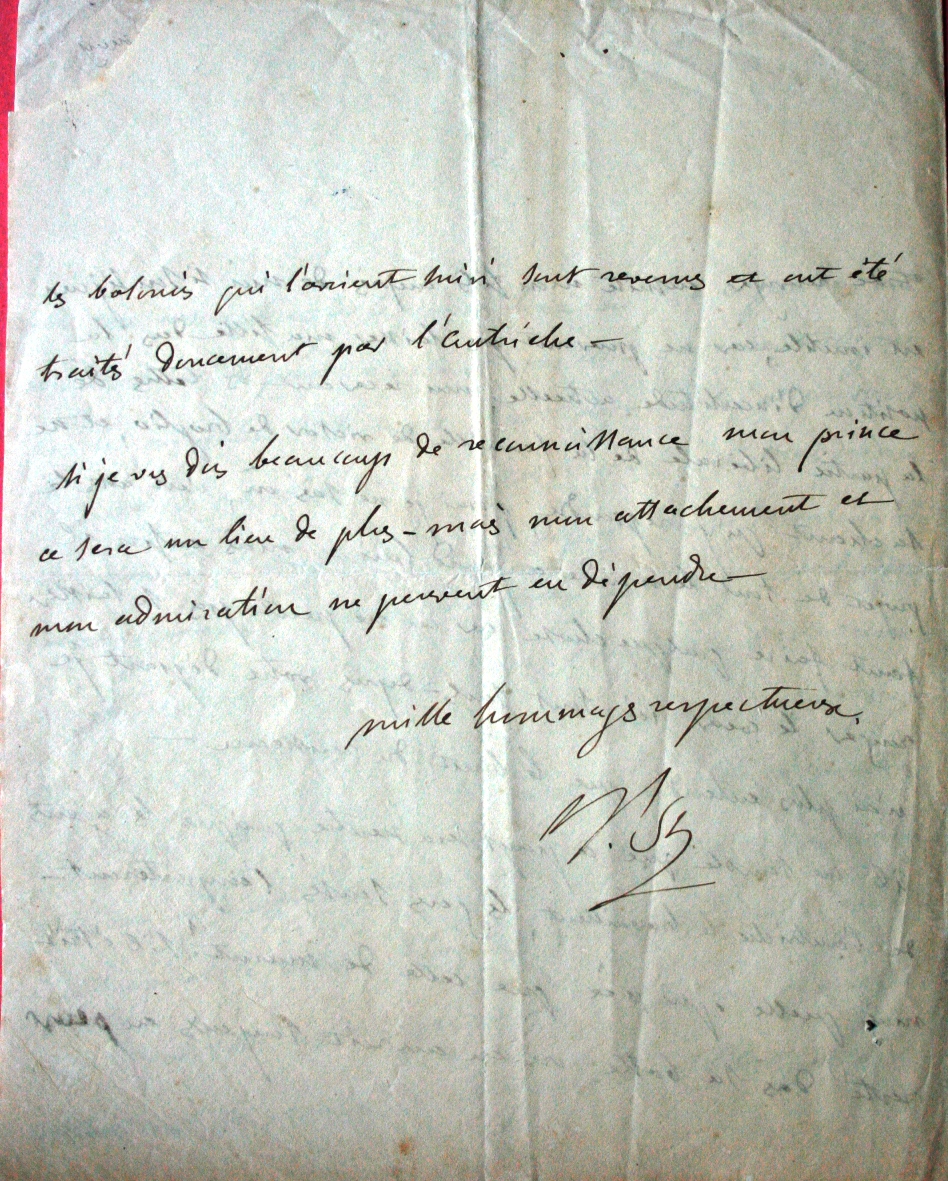 les bolonais qui l'avaient suivi sont revenus et ont été
traités doucement par l'autriche –
si je vs dois beaucoup de reconnaissance mon prince
ce sera un lien de plus – mais mon attachement et
mon admiration ne peuvent en dépendre –
mille hommages respectueux.